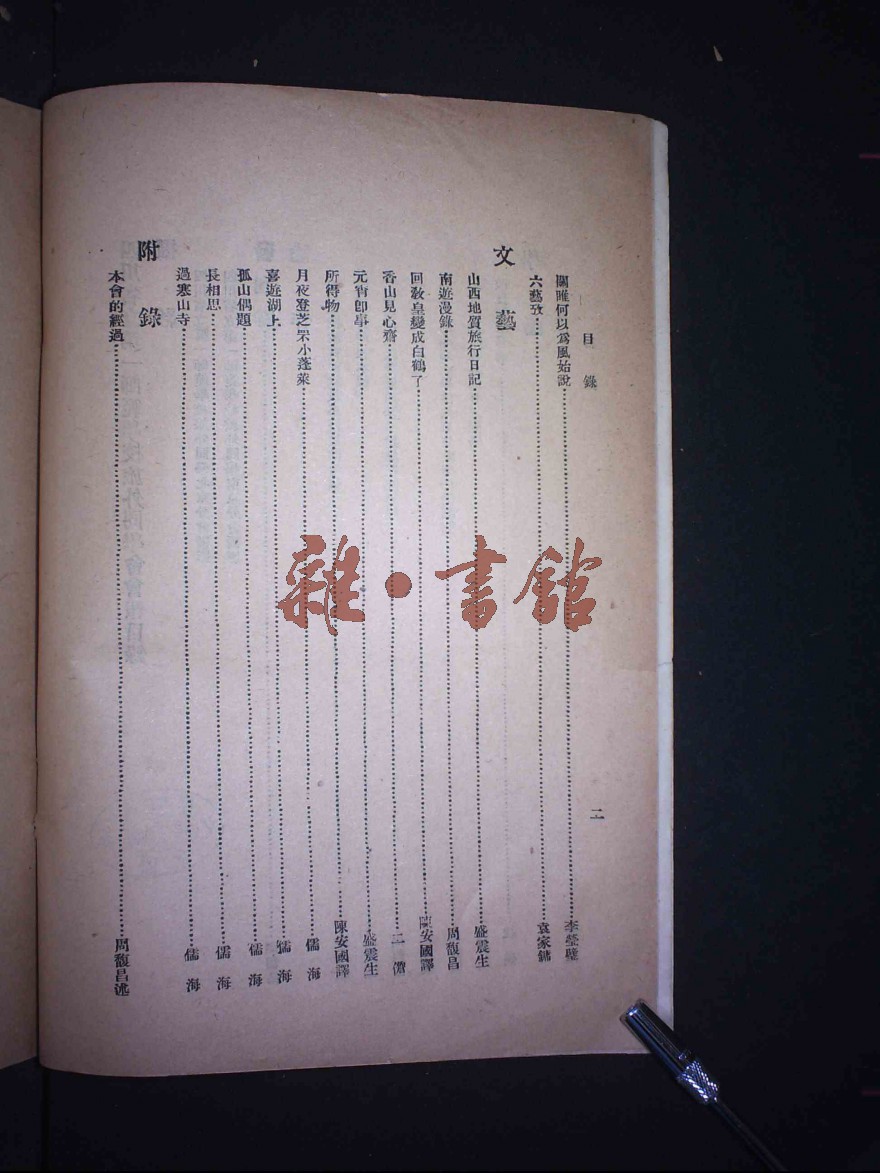 目錄
二
關雎何以爲風始說 李瑩璧
六藝攷 袁家鏞
文藝
山西地質旅行日記 盛震生
南遊漫錄 周馥昌
回敎皇變成白鶴了 陳安國譯
香山見心齋
元宵卽事 盛震生
所得物 陳安國譯
月夜登芝罘小蓬萊 儒海
喜遊湖上 儒海
孤山偶題 儒海
長相思 儒海
過寒山寺 儒海
附錄
本會的經過 周馥昌述
雜·書館